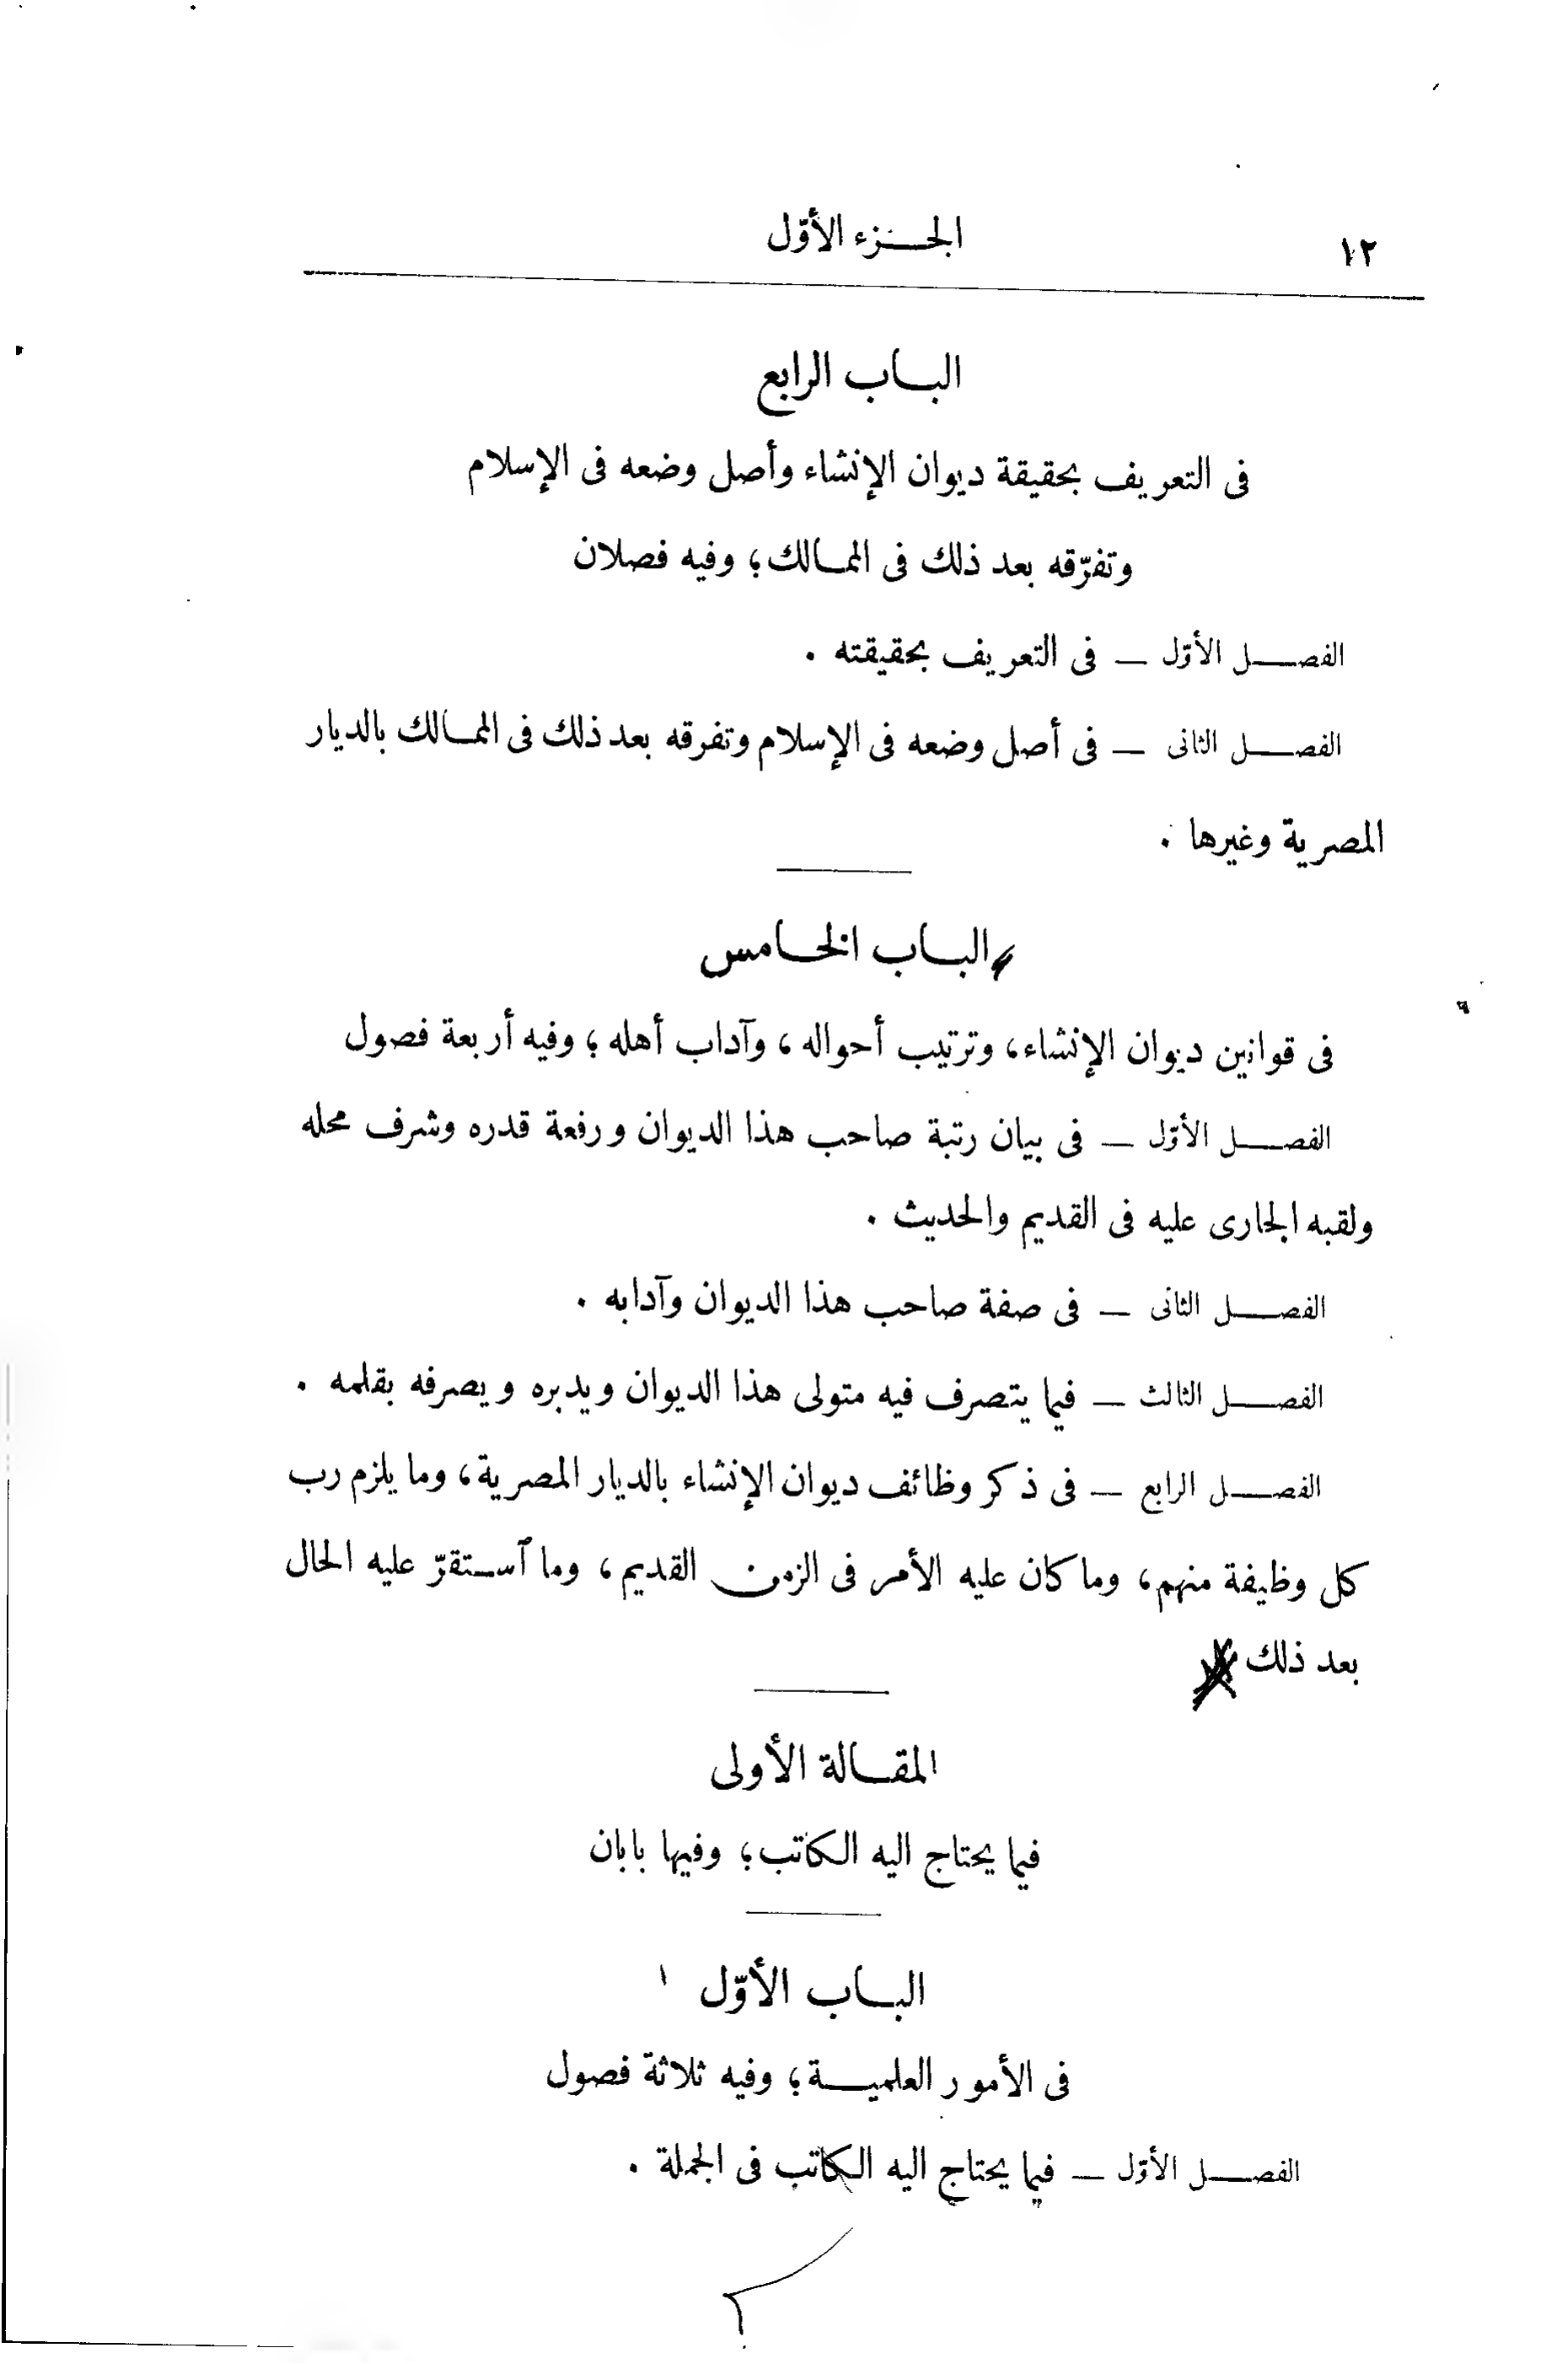 ١٢
الجزء الأوّل
الباب الرابع
فى التعريف بحقيقة ديوان الإنشاء وأصل وضعه فى الإسلام
وتفرّقه بعد ذلك فى الممالك؛ وفيه فصلان
الفصل الأوّل — فى التعريف بحقيقته .
الفصل الثانى — فى أصل وضعه فى الإسلام وتفرقه بعد ذلك فى الممالك بالديار
المصرية وغيرها .
الباب الخامس
فى قوانين ديوان الإنشاء، وترتيب أحواله، وآداب أهله؛ وفيه أربعة فصول
الفصل الأوّل — فى بيان رتبة صاحب هذا الديوان ورفعة قدره وشرف محله
ولقبه الجارى عليه فى القديم والحديث .
الفصل الثانى — فى صفة صاحب هذا الديوان وآدابه .
الفصل الثالث — فيما يتصرف فيه متولى هذا الديوان ويدبره ويصرفه بقلمه .
الفصل الرابع — فى ذكر وظائف ديوان الإنشاء بالديار المصرية، وما يلزم رب
كل وظيفة منهم، وما كان عليه الأمر فى الزمن القديم، وما ٱستقرّ عليه الحال
بعد ذلك
المقالة الأولى
فيما يحتاج اليه الكاتب؛ وفيها بابان
الباب الأوّل
فى الأمور العلمية؛ وفيه ثلاثة فصول
الفصل الأوّل — فيما يحتاج اليه الكاتب فى الجملة .